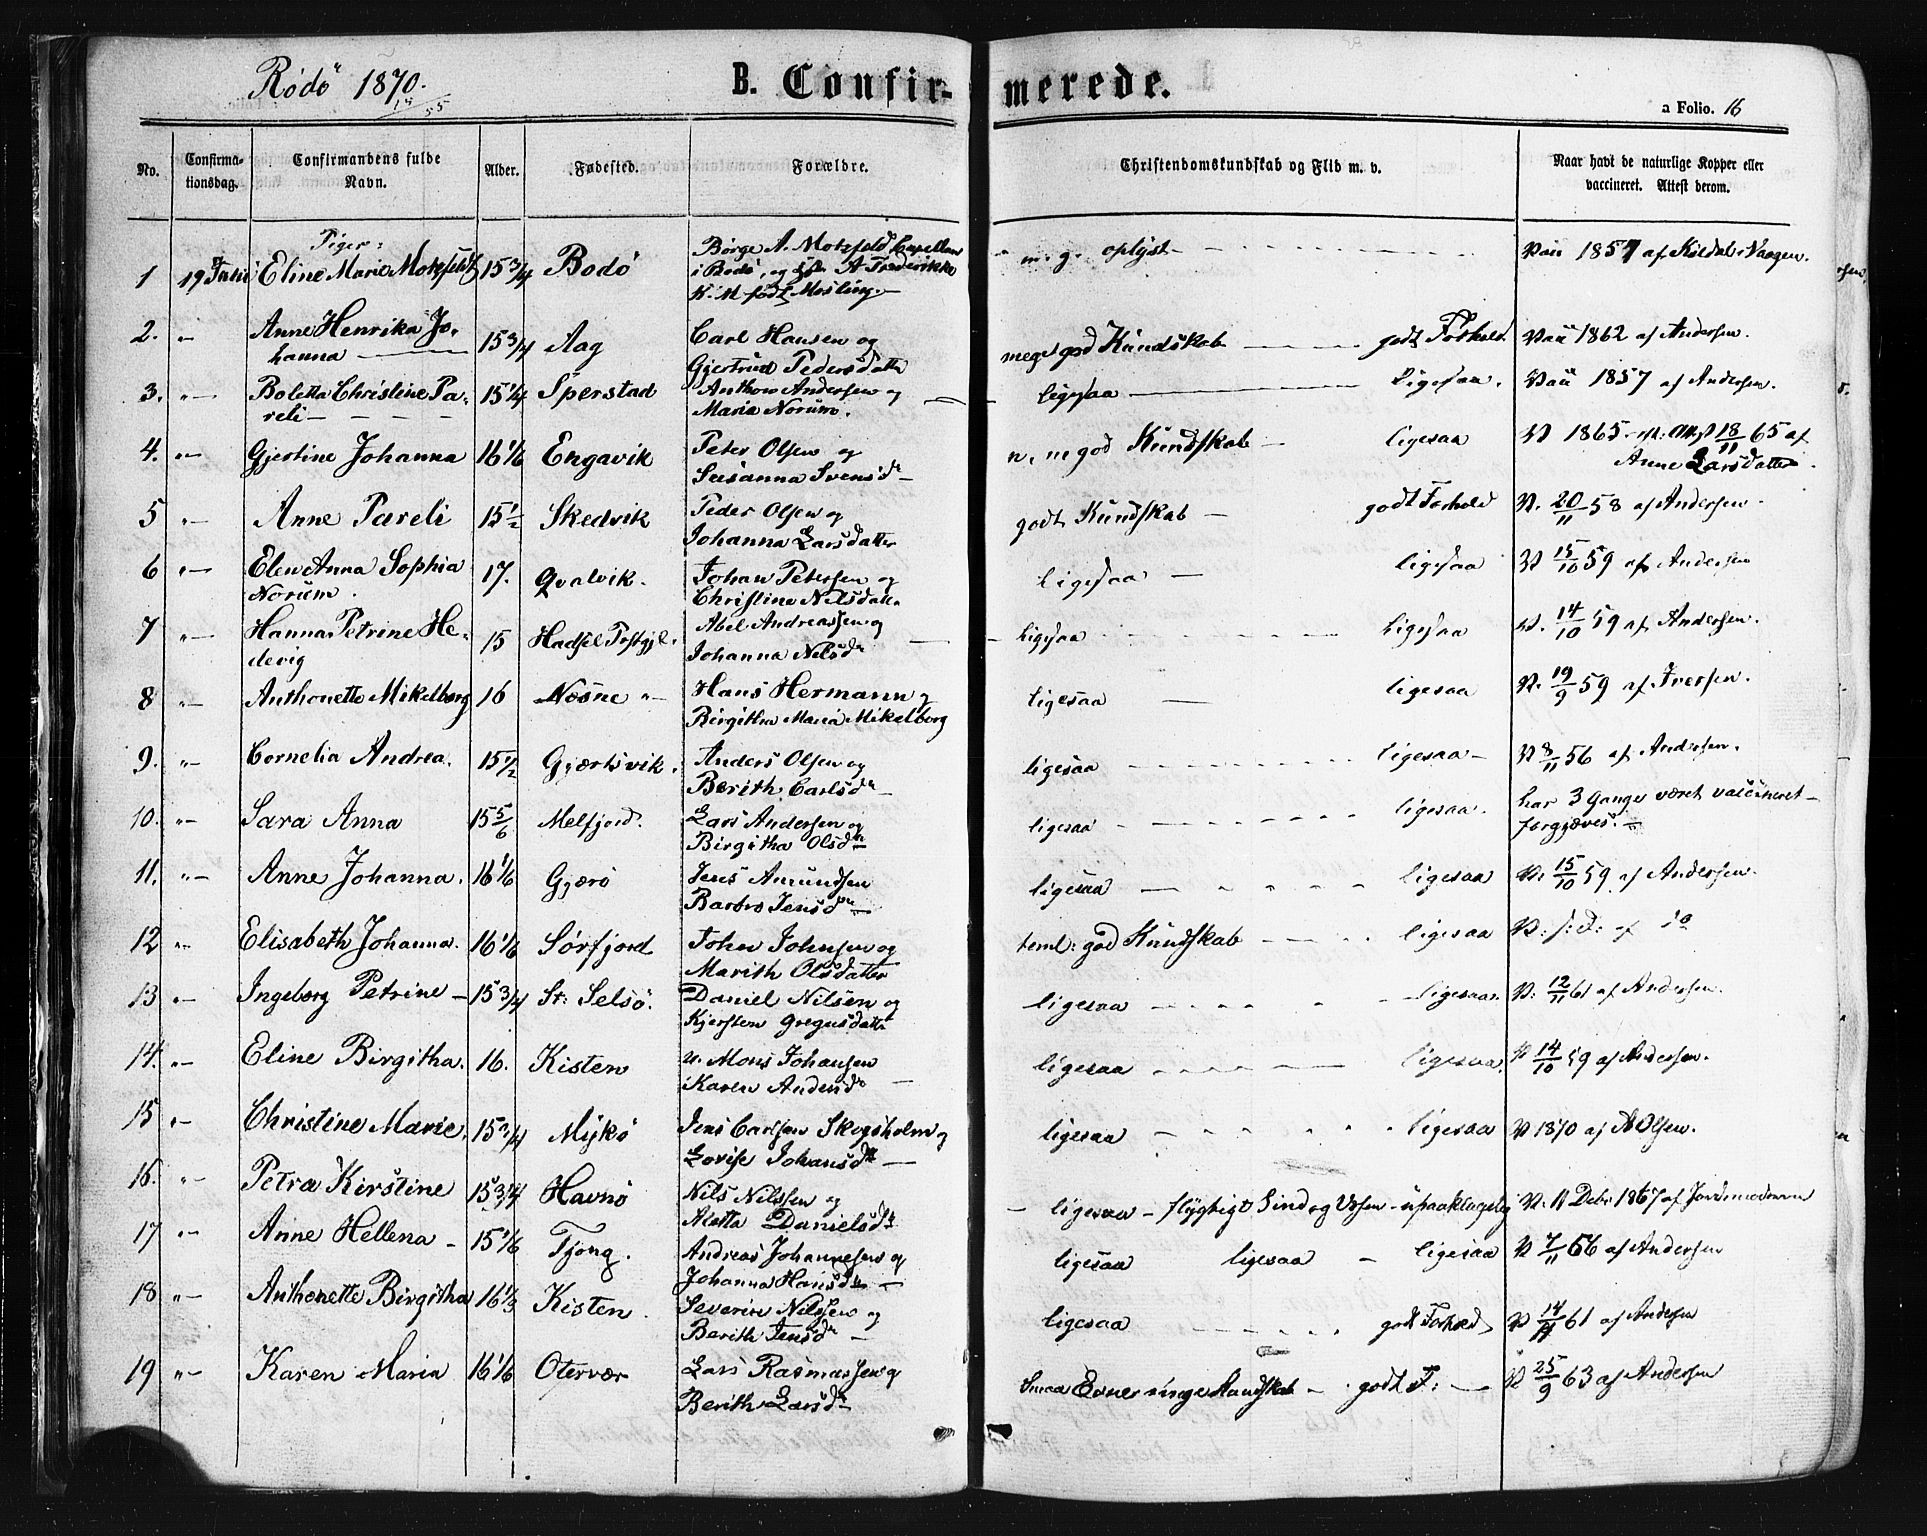 Rödö 1870.
B. Confir-
merede.
a Folio. 16
No.
Confirma-
tionsdag.
Confirmandens fulde
Navn.
Alder.
Fødested.
Forældre.
Christendomskundskab og Flid m. v.
Naar havt de naturlige Kopper eller
vaccineret. Attest derom.
Piger:
1 19 Eline Marie Motzfeldt 15 3/4 Bodö Börge A. Motzfeld Capellan
i Bodö, og A Frederikke
K. M født m. g. oplyst Vac 1857 af Vaagen.
2. " Anne Henrika Jo-
hanna 15 3/4 Aag Carl Hansen og
Gjertrud Pedersdatter meget god Kundskab godt Forhold Vac 1862 af Andersen.
3. " Boletta Christine Pa-
reli 15 1/4 Sperstad Anthon Andersen og
Maria Norum. ligesaa ligesaa. Vac 1857 af Andersen.
4. " Gjertine Johanna 16 1/6 Engavik Peter Olsen og
Susanna Svensdr n. m god Kundskab ligesaa V 1865 18/11 65 af
Anne Larsdatter.
5 " Anne Pareli 15 1/2 Skedvik Peder Olsen og
Johanna Larsdatter godt Kundskab godt Forhold V. 20/11 58 af Andersen
6 " Elen Anna Sophia
Norum. 17. Qvalvik. Johan Petersen og
Christine Nilsdatter ligesaa ligesaa V 15/10 59 af Andersen
7 " Hanna Petrine He-
devig 15 Hadsel Præstgjl. Abel Andreassen og
Johanna Nelsdr ligesaa ligesaa V. 14/10 59 af Andersen.
8 " Anthonette Mikelborg 16 Næsne " Hans Hermann og
Birgitha Maria Mikelborg ligesaa ligesaa V. 19/9 59 af Iversen.
9. " Cornelia Andrea. 15 1/2 Gjærtsvik. Anders Olsen og
Berith Carlsdr ligesaa ligesaa V 8/11 56 af Andersen.
10. " Sara Anna 15 5/6 Melfjord. Lars Andersen og
Birgitha Olsdtr ligesaa ligesaa. har 3 Gange været vaccineret
forgjæves.
11. " Anne Johanna. 16 1/6 Gjærö Jens Amundsen
Barbro Jensdtr ligesaa ligesaa V. 15/10 59 af Andersen.
12 " Elisabeth Johanna. 16 1/6 Sörfjord John Johnsen og
Marith Olsdatter teml: god Kundskab ligesaa V: s: D: af do
13 " Ingeborg Petrine 15 3/4 St: Selsö. Daniel Nilsen og
Kjersten Gregusdatter ligesaa ligesaa. V: 12/11 61 af Andersen.
14. " Eline Birgitha. 16. Kisten u. Mons Johansen
Karen Andersdr ligesaa ligesaa. V 14/10 59 af Andersen.
15 " Christine Marie. Mykö Jens Carlsen Skogsholm og
Lovise Johansdtr ligesaa ligesaa V 1870 af A Olsen.
16. " Petra Kirstine 15 3/4 Havnö Nils Nilssen og
Aletta Danielsdtr ligesaa flygtigt Sind og Væsen upaaklagelig V. 11 Debr 1867 af Jordemoderen
17 " Anne Hellena 15 1/6 Tjong. Andreas Johannesen og
Johanna Hansdtr ligesaa ligesaa ligesaa V 7/11 56 af Andersen
18 " Anthonette Birgitha 16 1/3 Kisten. Severin Nilssen og
Berith Jensdr ligesaa godt Forhold V 14/11 61 af Andersen
19 " Karen Maria 16 1/6 Otervær Lars Rasmussen og
Berith Larsdtr Smaa Evner ringe Kundskab godt F: V 25/9 63 af Andersen